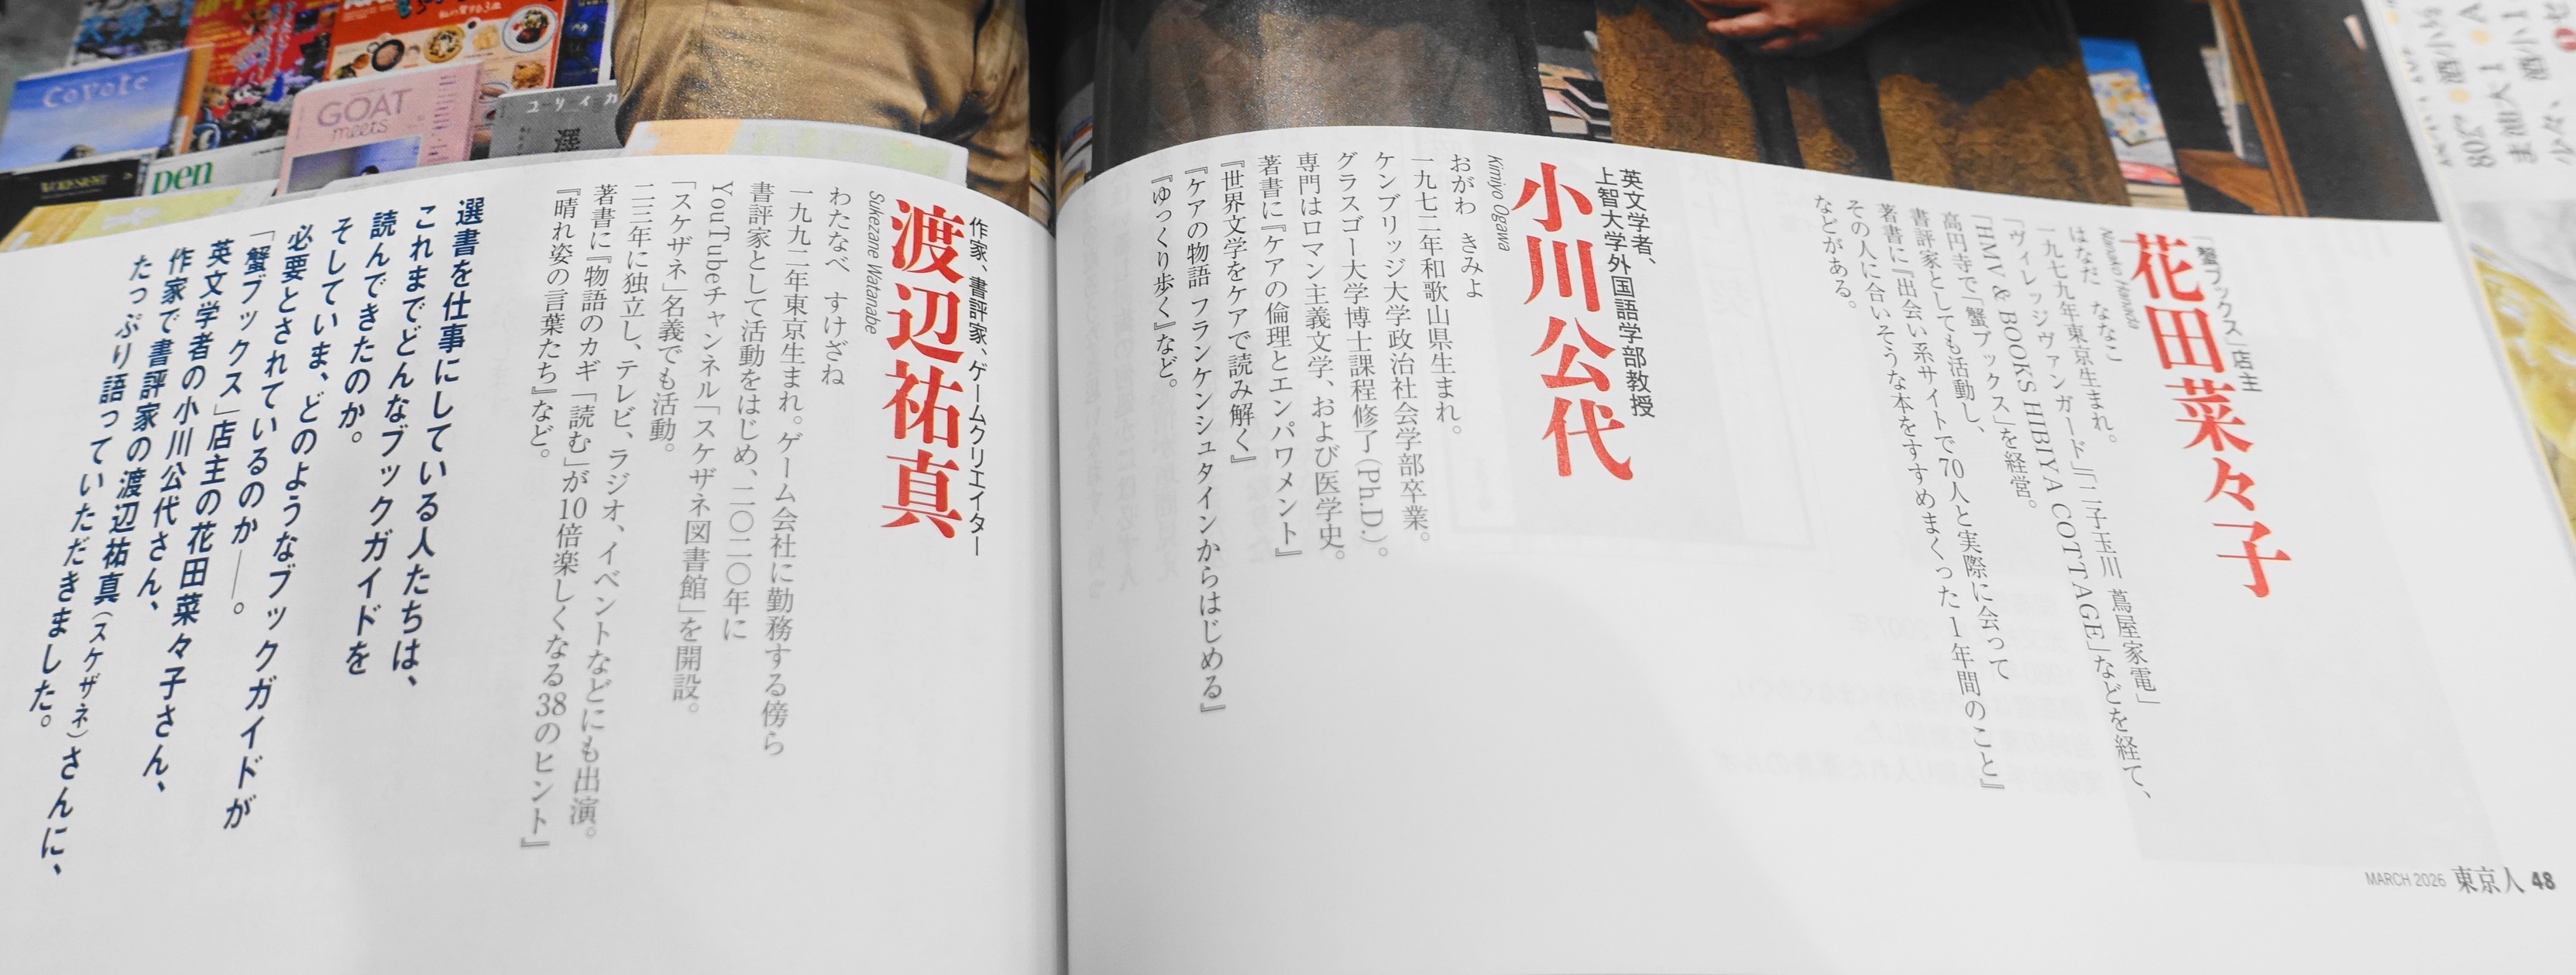 「蟹ブックス」店主
花田菜々子
Nanako Hanada
はなだ ななこ
一九七九年東京生まれ。
「ヴィレッジヴァンガード」「二子玉川 蔦屋家電」
「HMV & BOOKS HIBIYA COTTAGE」などを経て、
高円寺で「蟹ブックス」を経営。
書評家としても活動し、
著書に『出会い系サイトで70人と実際に会って
その人に合いそうな本をすすめまくった1年間のこと』
などがある。
英文学者、
上智大学外国語学部教授
小川公代
Kimiyo Ogawa
おがわ きみよ
一九七二年和歌山県生まれ。
ケンブリッジ大学政治社会学部卒業。
グラスゴー大学博士課程修了（Ph.D.）。
専門はロマン主義文学、および医学史。
著書に『ケアの倫理とエンパワメント』
『世界文学をケアで読み解く』
『ケアの物語 フランケンシュタインからはじめる』
『ゆっくり歩く』など。
MARCH 2026 東京人 48
作家、書評家、ゲームクリエイター
渡辺祐真
Sukezane Watanabe
わたなべ すけざね
一九九二年東京生まれ。ゲーム会社に勤務する傍ら
書評家として活動をはじめ、二〇二〇年に
YouTubeチャンネル「スケザネ図書館」を開設。
「スケザネ」名義でも活動。
二三年に独立し、テレビ、ラジオ、イベントなどにも出演。
著書に『物語のカギ 「読む」が10倍楽しくなる38のヒント』
『晴れ姿の言葉たち』など。
選書を仕事にしている人たちは、
これまでどんなブックガイドを
読んできたのか。
そしていま、どのようなブックガイドが
必要とされているのか――。
「蟹ブックス」店主の花田菜々子さん、
英文学者の小川公代さん、
作家で書評家の渡辺祐真（スケザネ）さんに、
たっぷり語っていただきました。
Coyote
GOAT
meets
ユリイカ
Pen